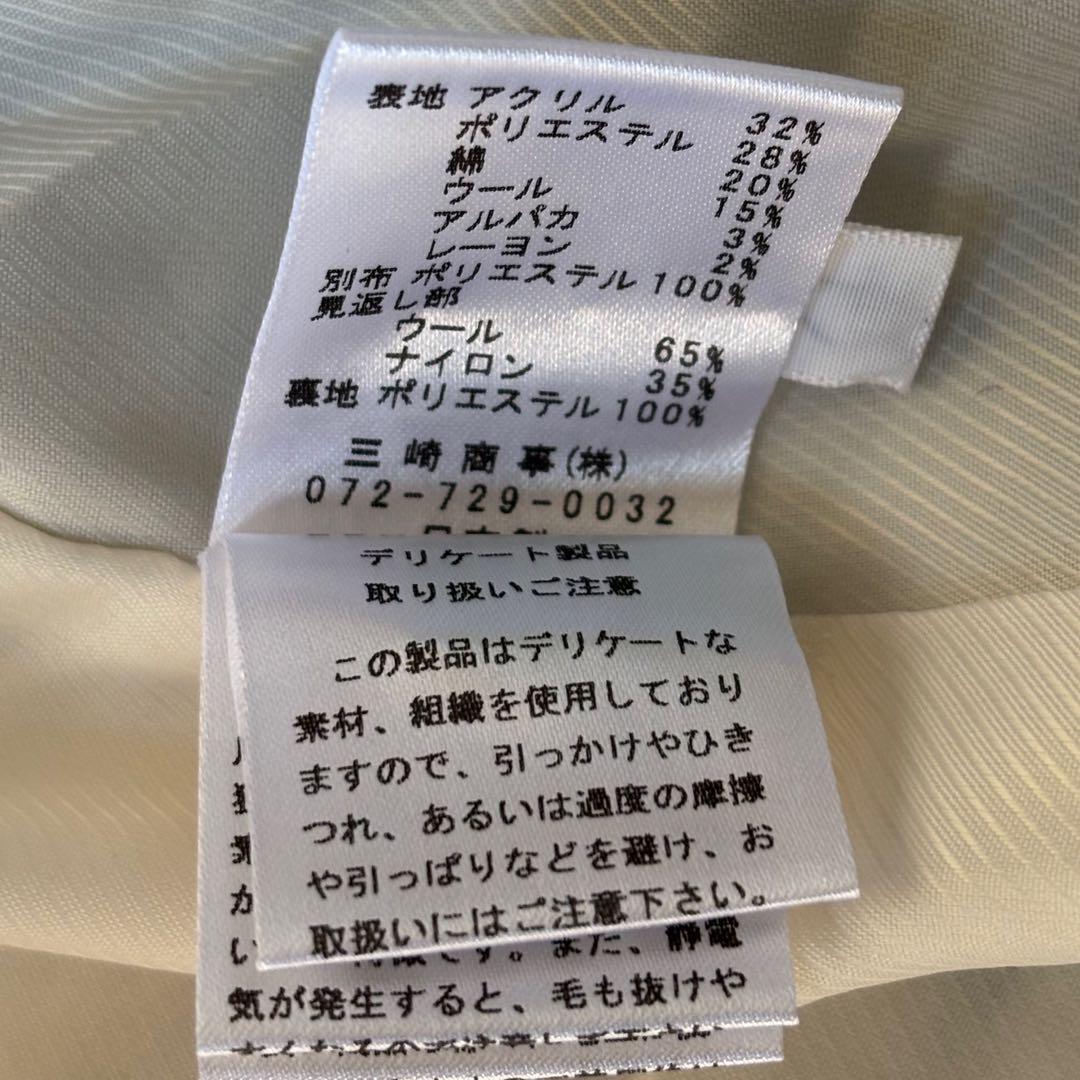 表地 アクリル 32%
ポリエステル 28%
綿 20%
ウール 15%
アルパカ 3%
レーヨン 2%
別布 ポリエステル 100%
見返し部
ウール 65%
ナイロン 35%
裏地 ポリエステル 100%
三崎商事(株)
072-729-0032
デリケート製品
取り扱いご注意
この製品はデリケートな
素材、組織を使用しており
ますので、引っかけやひき
つれ、あるいは過度の摩擦
や引っぱりなどを避け、お
取扱いにはご注意下さい。
か
い
です。また、静電
気が発生すると、毛も抜けや